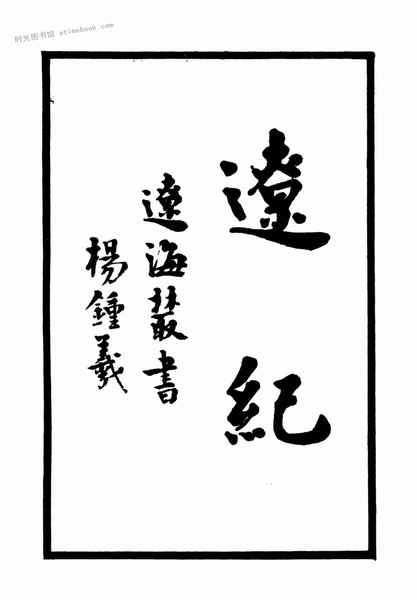 时光图书馆 etimebook.com
遼紀
遼海叢書
楊鍾羲